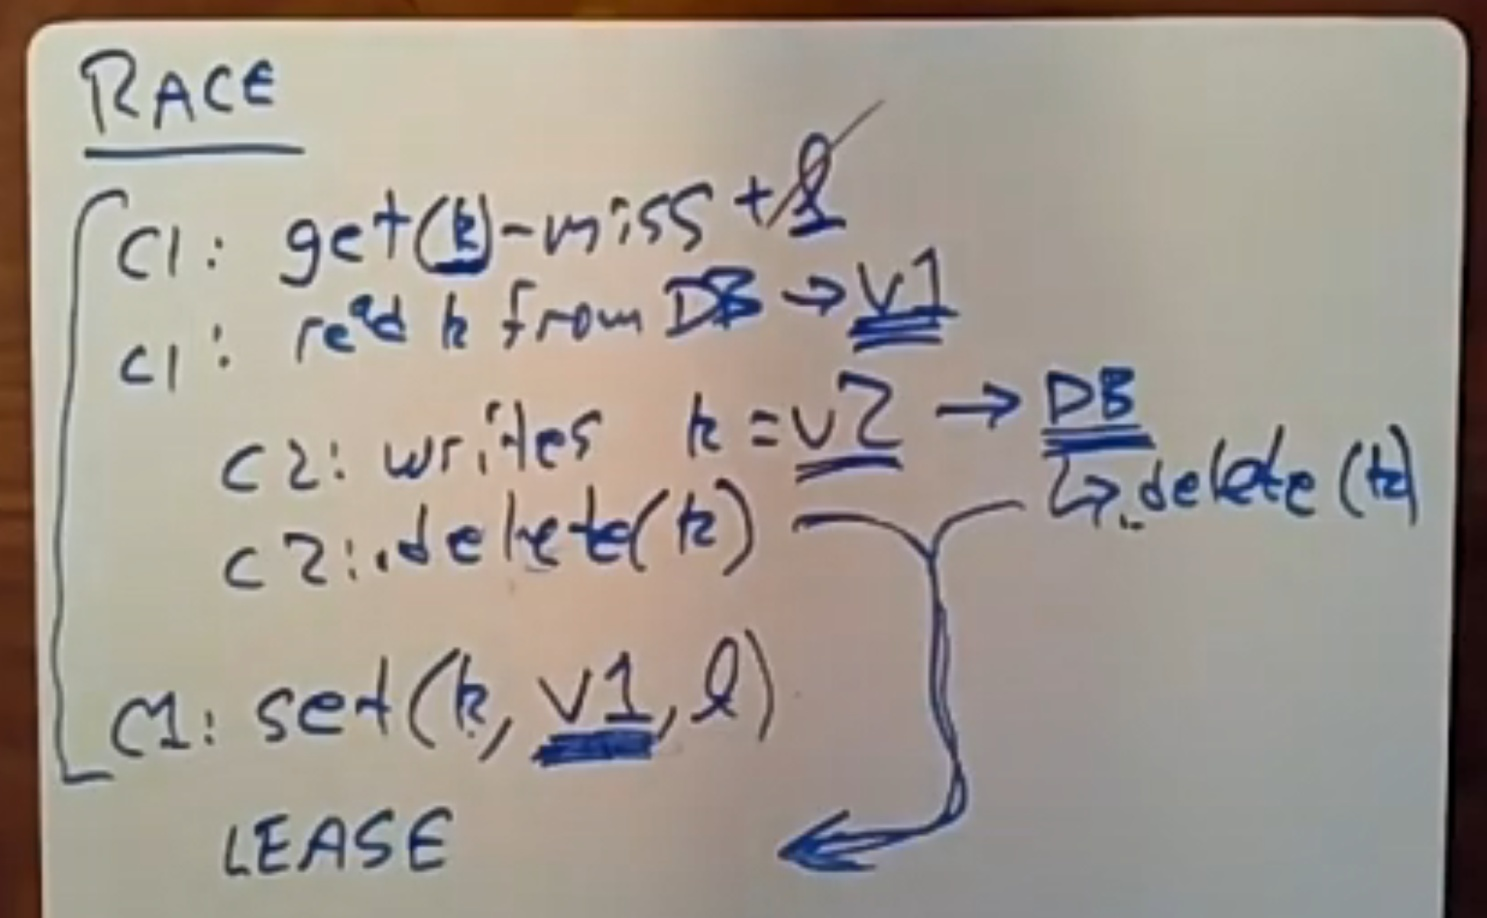 RACE
C1: get(k)-miss + l
C1: read k from DB → v1
C2: writes k = v2 → DB
↳ delete(k)
C2: delete(k)
C1: set(k, v1, l)
LEASE